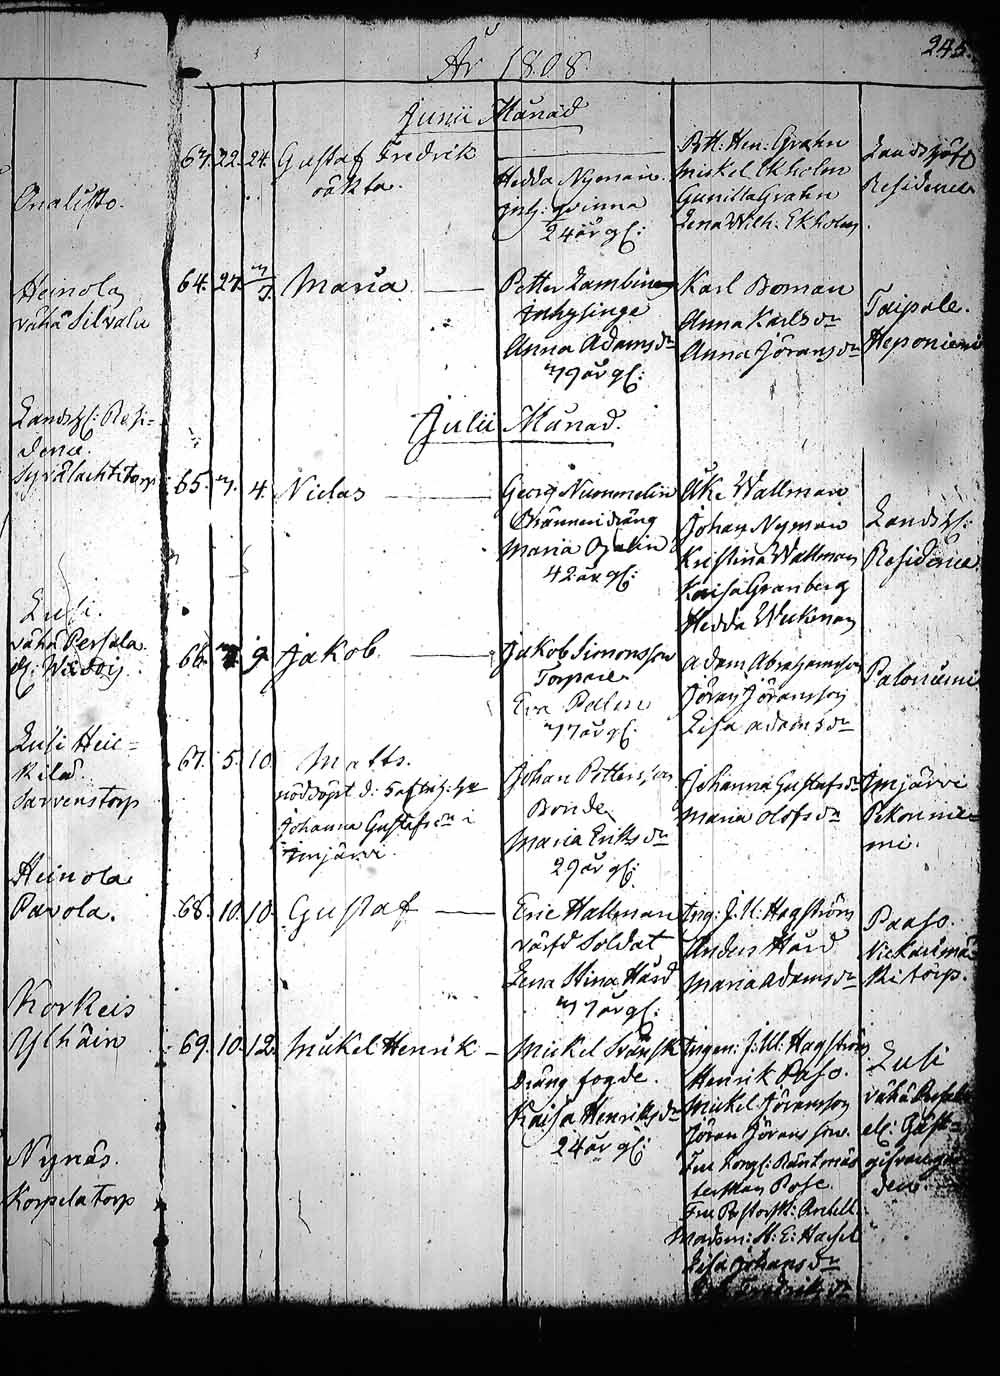 245.
År 1808.
Junii Månad
Onalisto.
63. 22. 24. Gustaf Fredrik
oäkta.
Hedda Nyman.
inh: qvinna
24 år gl:
Btl: Hen: Grahn
Mickel Ekholm
Gunilla Grahn
Lena Wilh: Ekholm
Landshöf
Residence
Heinola
vähä Silvalu
64. 27. 7/3. Maria
Petter Lambin
Inhysinge
Anna Adamsdr
79 år gl:
Karl Boman
Anna Karlsdr
Anna Jöransdr
Taipale.
Heponiemi
Landsh: Resi=
dence.
Julii Månad.
Syrälachti torp
65. 7. 4. Niclas
Georg Nummelin
Bränneri dräng
Maria
42 år gl:
Åke Wallman
Johan Nyman
Kristina Wallman
Kaisa Granberg
Hedda Wickman
Landsh:
Residence
Lusi.
vähä Persala
66. 7 9 Jakob.
Jakob Simonsson
Torpare
Eva Palin
77 år gl:
Adam Abrahamsson
Jöran Jöransson
Lisa Adamsdr
Paloniemi
Lusi Hei=
kilä.
Sarvens torp
67. 5. 10. Matts.
nöddöpt d: 5 af
Johanna Gustafsdr i
Imjärvi.
Johan Pettersson
Bonde
Maria Eriksdr
29 år gl:
Johanna Gustafsdr
Maria Olofsdr
Imjärvi
Pekonie=
mi.
Heinola
Pavola.
68. 10. 10. Gustaf
Eric Hallman
värfd Soldat
Lena Stina Hård
77 år gl:
Ing: J. U: Hagström
Anders Hård
Maria Adamsdr
Paaso.
Nickarimä=
ki torp.
Korkeis
Ylhäin
69. 10. 12. Mickel Henrik
Mickel Svänsk
Drängfogde.
Kaisa Henriksdr
24 år gl:
Ingen: J: U: Hagström
Henrik Paso.
Mickel Jöransson
Jöran Jöransson.
Fru Kongl: Räntmäs
terskan Pose
Mamsn: H: E: Hassel
Lisa Johansdr
Fredriksdr
Lusi
vähä Persala
el: Gäst=
gifvaregår
den.
Nynäs.
Korpela torp